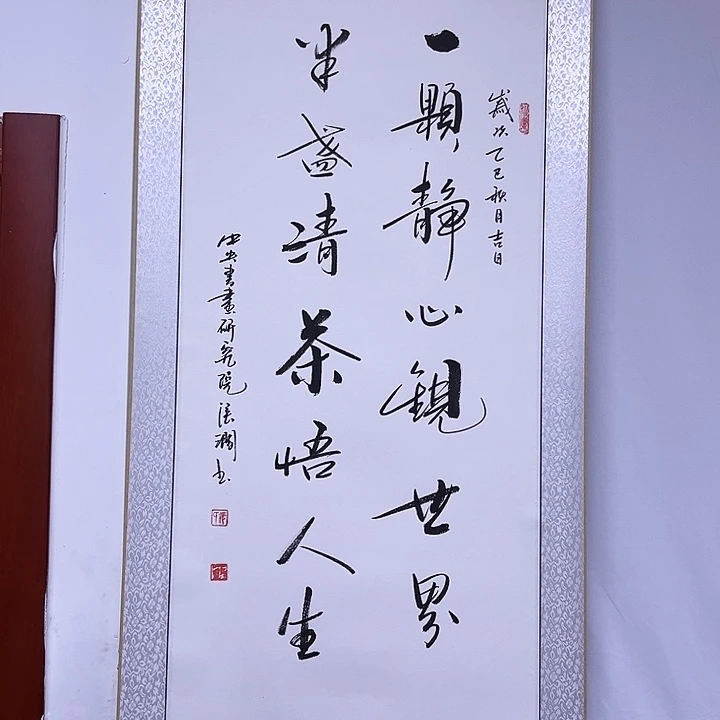 歲次乙巳秋月吉日
一顆靜心觀世界
半盞清茶悟人生
中央書畫研究院